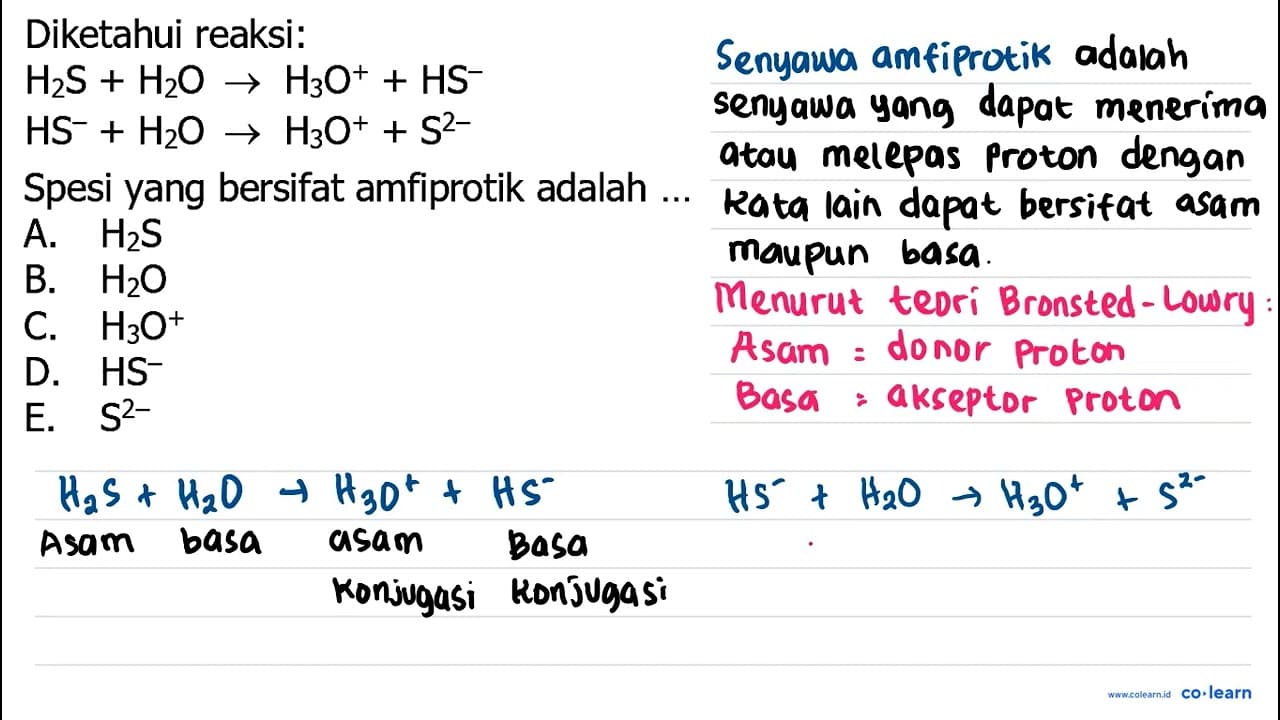 Diketahui reaksi:
H₂S + H₂O → H₃O⁺ + HS⁻
HS⁻ + H₂O → H₃O⁺ + S²⁻
Spesi yang bersifat amfiprotik adalah ...
A. H₂S
B. H₂O
C. H₃O⁺
D. HS⁻
E. S²⁻
Senyawa amfiprotik adalah
senyawa yang dapat menerima
atau melepas proton dengan
kata lain dapat bersifat asam
maupun basa.
Menurut teori Bronsted-Lowry:
Asam = donor proton
Basa = akseptor proton
H₂S + H₂O → H₃O⁺ + HS⁻
Asam basa asam Basa
konjugasi konjugasi
HS⁻ + H₂O → H₃O⁺ + S²⁻
www.colearn.id co·learn